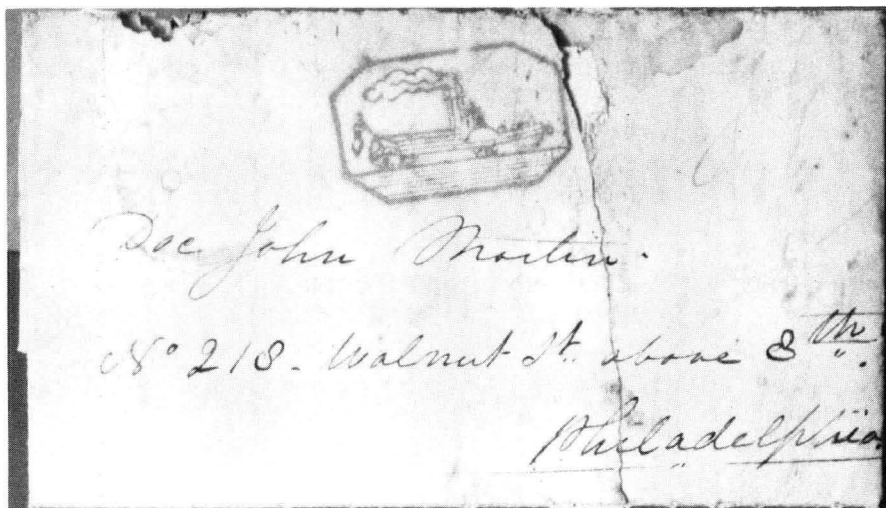 Doc. John Martin.
No 218. Walnut St. above 8th.
Philadelphia